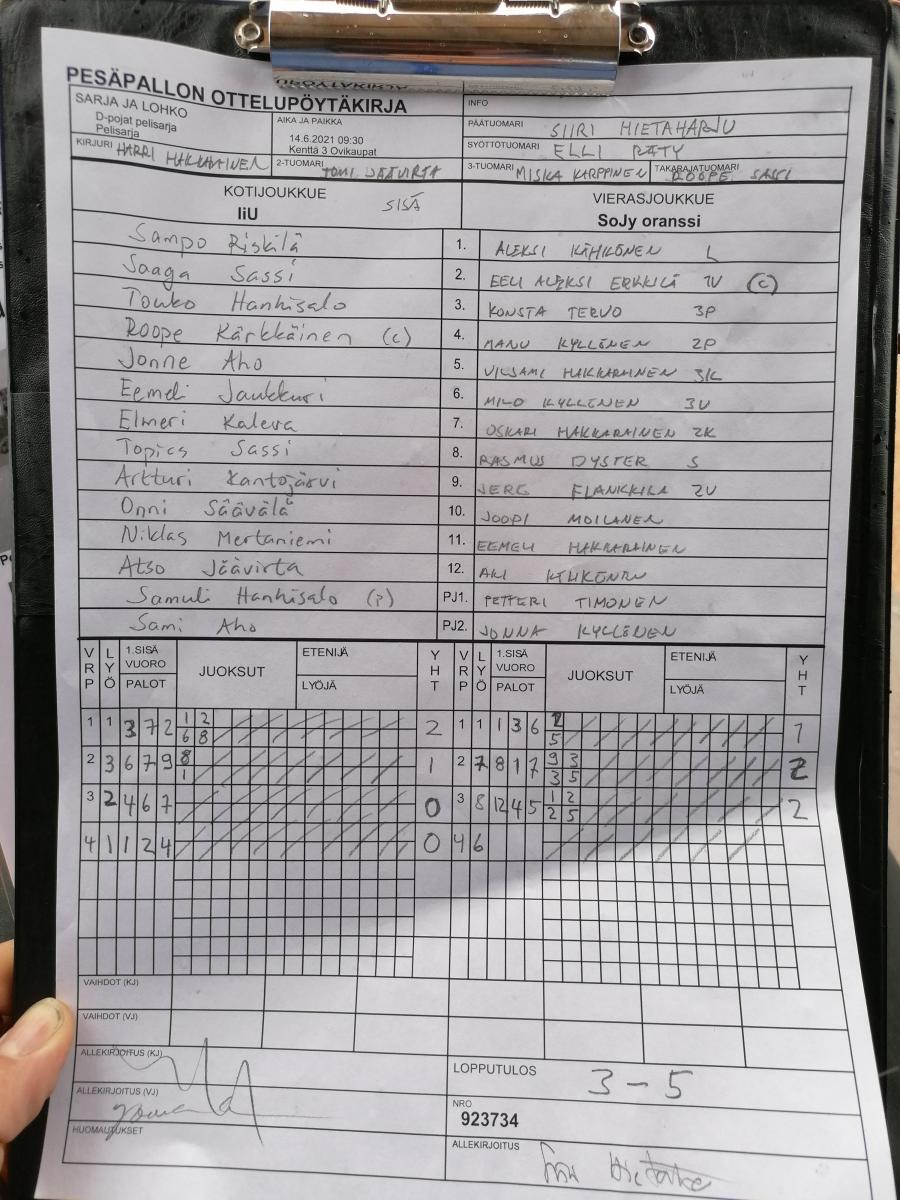 PESÄPALLON OTTELUPÖYTÄKIRJA
SARJA JA LOHKO
D-pojat pelisarja
Pelisarja
AIKA JA PAIKKA
14.6.2021 09:30
Kenttä 3 Ovikaupat
INFO
PÄÄTUOMARI SIIRI HIETAHARJU
SYÖTTÖTUOMARI ELLI RÄTY
KIRJURI HARRI HAKKARAINEN
2-TUOMARI TOMI JÄÄVIRTA
3-TUOMARI MISKA KARPPINEN
TAKARAJATUOMARI ROOPE SASSI
KOTIJOUKKUE
IiU SISÄ
VIERASJOUKKUE
SoJy oranssi
Sampo Riskilä 1. ALEKSI KÄHKÖNEN L
Saaga Sassi 2. EELI ALEKSI ERKKILÄ 1V (C)
Touko Hanhisalo 3. KONSTA TERVO 3P
Roope Kärkkäinen (c) 4. MANU KYLLÖNEN 2P
Jonne Aho 5. VILJAMI HAKKARAINEN 3K
Eemeli Jaukkuri 6. MILO KYLLÖNEN 3V
Elmeri Kaleva 7. OSKARI HAKKARAINEN 2K
Topias Sassi 8. RASMUS DYSTER S
Artturi Kantojärvi 9. JERE FLANKKILA 2V
Onni Säävälä 10. JOOPI MOILANEN
Niklas Mertaniemi 11. EEMELI HAKKARAINEN
Atso Jäävirta 12. AKI KÄHKÖNEN
Samuli Hanhisalo (P) PJ1. PETTERI TIMONEN
Sami Aho PJ2. JONNA KYLLÖNEN
VRP LYÖ 1.SISÄ VUORO PALOT JUOKSUT ETENIJÄ LYÖJÄ YHT VRP LYÖ 1.SISÄ VUORO PALOT JUOKSUT ETENIJÄ LYÖJÄ YHT
1 1 3 7 2 1 2 2 1 1 1 3 6 1
6 8 5
2 3 6 7 9 8 1 2 7 8 1 7 9 3 2
1 3 5
3 2 4 6 7 0 3 8 12 4 5 1 2 2
2 5
4 1 1 2 4 0 4 6
VAIHDOT (KJ)
VAIHDOT (VJ)
ALLEKIRJOITUS (KJ)
ALLEKIRJOITUS (VJ)
HUOMAUTUKSET
LOPPUTULOS 3 - 5
NRO
923734
ALLEKIRJOITUS